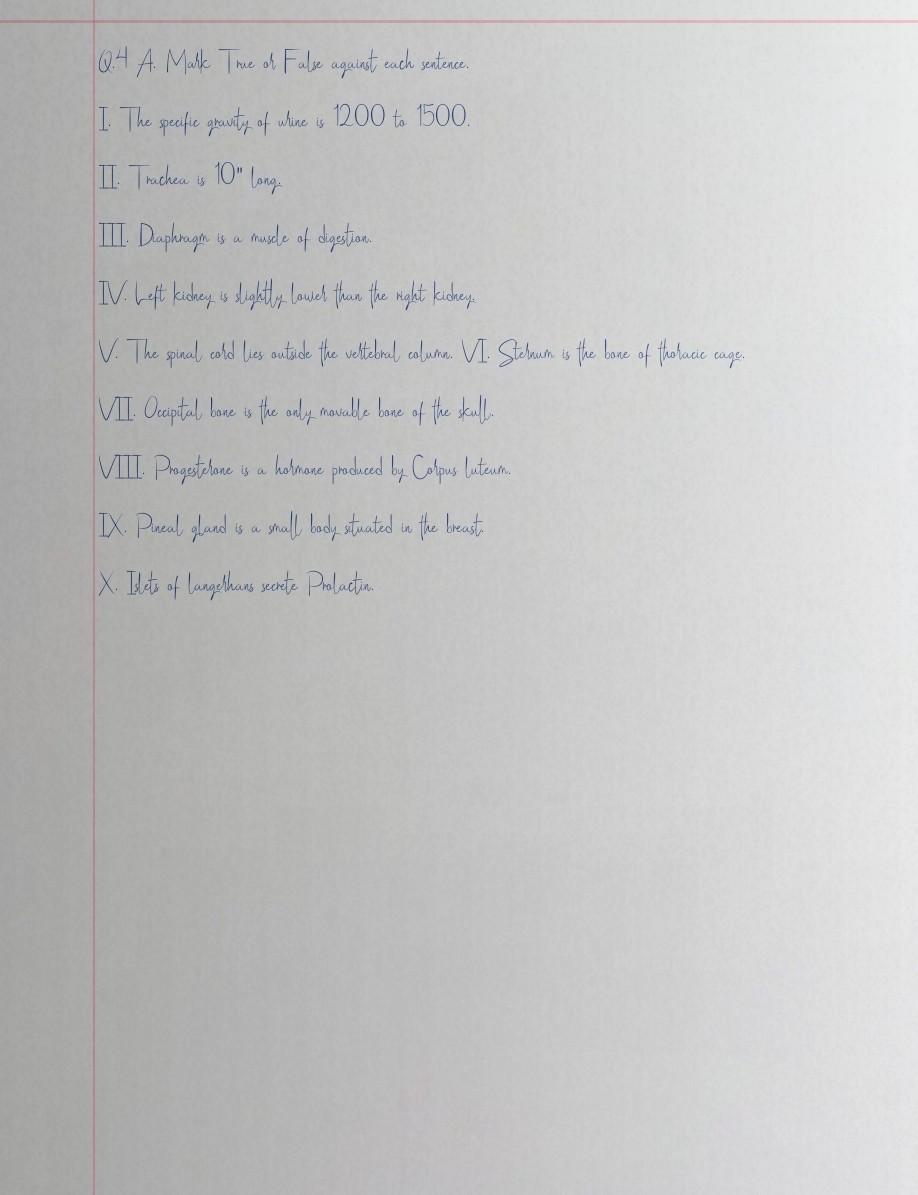 Q.4 A. Mark True or False against each sentence.
I. The specific gravity of urine is 1200 to 1500.
II. Trachea is 10" long.
III. Diaphragm is a muscle of digestion.
IV. Left kidney is slightly lower than the right kidney.
V. The spinal cord lies outside the vertebral column. VI. Sternum is the bone of thoracic cage.
VII. Occipital bone is the only movable bone of the skull.
VIII. Progesterone is a hormone produced by Corpus luteum.
IX. Pineal gland is a small body situated in the breast.
X. Islets of langerhans secrete Prolactin.